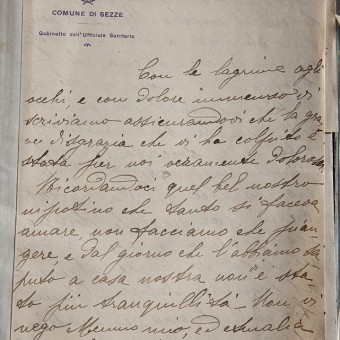 COMUNE DI SEZZE
Gabinetto dell'Ufficiale Sanitario
Con le lagrime agli
occhi, e con dolore immenso vi
scriviamo assicurandovi che la gra
ve disgrazia che vi ha colpito è
stata per noi veramente dolorosa
Ricordandoci quel bel nostro
nipotino che tanto si faceva
amare non facciamo che pian
gere, e dal giorno che l'abbiamo sa
puto a casa nostra non è sta
to più tranquillità. Non vi
nego Memmo mio, ed Amalia